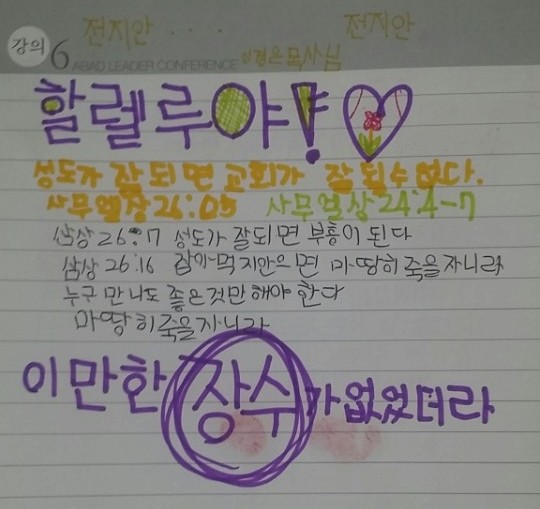 전지안 . . . . 전지안
강의 6
ABAD LEADER CONFERENCE 이경은목사님
할렐루야!
성도가 잘되면 교회가 잘될수없다.
사무엘장26:05 사무엘상24:4-7
삼상26:7 성도가 잘되면 부흥이 된다
삼상 26:16 마땅히 죽을자니라
누구 만나도 좋은것만해야 한다
마땅히죽을자니라
이만한 장수가없었더라